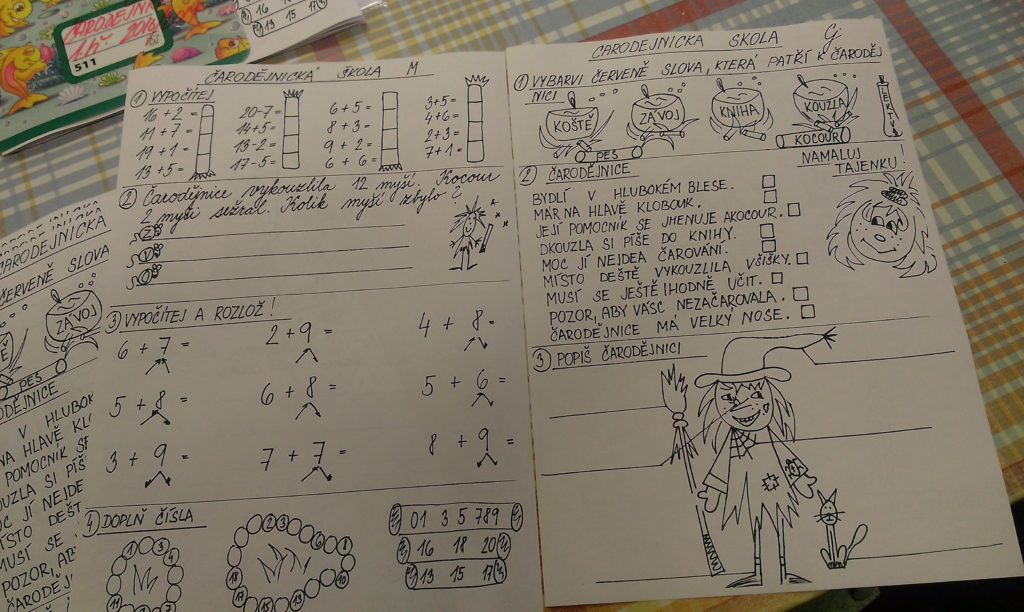 ČARODĚJNICE
1.tř. 2016
511
16
13 15 17
ČARODĚJNICKÁ ŠKOLA M
1 VYPOČÍTEJ
16+2=
11+7=
19+1=
13+5=
20-7=
14+5=
13-2=
17-5=
6+5=
8+3=
9+2=
6+6=
3+5=
4+6=
2+3=
7+1=
2 Čarodějnice vykouzlila 12 myší. Kocour
2 myši sežral. Kolik myší zbylo?
Z:
V:
O:
3 VYPOČÍTEJ A ROZLOŽ!
6 + 7 =
2 + 9 =
4 + 8 =
5 + 8 =
6 + 8 =
5 + 6 =
3 + 9 =
7 + 7 =
8 + 9 =
4 DOPLŇ ČÍSLA
1 3 4 7 11
2 3 6 8 10 13 15 18
01 3 5 789
16 18 20
13 15 17
CARODEJNICKA SKOLA G
1 VYBARVI ČERVENĚ SLOVA, KTERÁ PATŘÍ K ČARODĚJ
NICI
KOŠTĚ
ZÁVOJ
KNIHA
KOUZLA
PES
KOCOUR
2 ČARODĚJNICE
NAMALUJ
TAJENKU!
BYDLÍ V HLUBOKÉM BLESE.
MÁR NA HLAVĚ KLOBOUK.
JEJÍ POMOCNÍK SE JHENUJE AKOCOUR.
DKOUZLA SI PÍŠE DO KNIHY.
MOC JÍ NEJDEA ČAROVÁNÍ.
MÍSTO DEŠTĚ VYKOUZLILA VŠIŠKY.
MUSÍ SE JEŠTĚ IHODNĚ UČIT.
POZOR, ABY VÁSC NEZAČAROVALA.
ČARODĚJNICE MÁ VELKÝ NOSE.
3 POPIŠ ČARODĚJNICI
ČARODEJNICKA
ČERVENĚ SLOVA
ZÁVOJ
PES
ODĚJNICE
V HLUBOK
NA HLAVĚ KL
POMOCNÍK SE
OUZLA SI PÍŠ
OC JÍ NEJDE
ÍSTO DEŠT
MUSÍ SE
POZOR, AB
ČARODĚJ